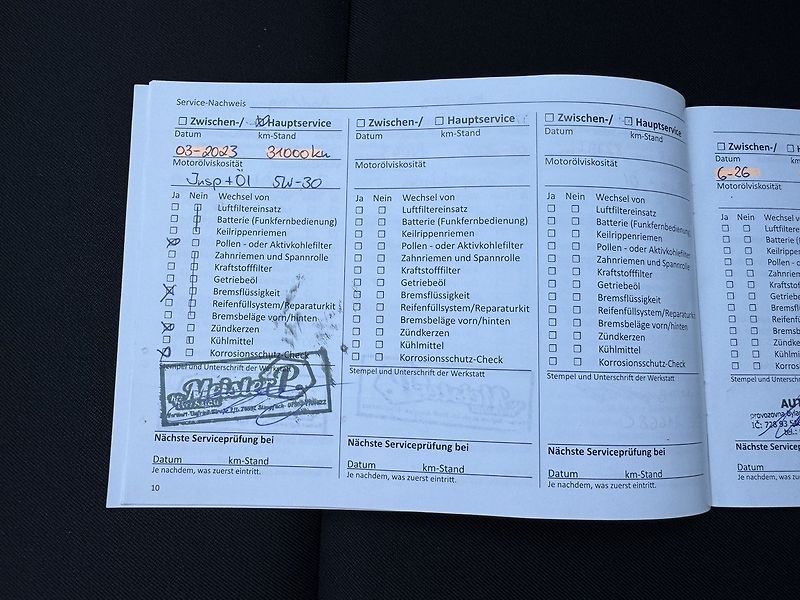 Service-Nachweis
☐ Zwischen-/ ☒ Hauptservice
Datum km-Stand
03-2023 31000km
Motorölviskosität
Insp+Öl 5W-30
Ja Nein Wechsel von
Luftfiltereinsatz
Batterie (Funkfernbedienung)
Keilrippenriemen
Pollen - oder Aktivkohlefilter
Zahnriemen und Spannrolle
Kraftstofffilter
Getriebeöl
Bremsflüssigkeit
Reifenfüllsystem/Reparaturkit
Bremsbeläge vorn/hinten
Zündkerzen
Kühlmittel
Korrosionsschutz-Check
Stempel und Unterschrift der Werkstatt
Meister P.
Nächste Serviceprüfung bei
Datum km-Stand
Je nachdem, was zuerst eintritt.
10
☐ Zwischen-/ ☐ Hauptservice
Datum km-Stand
Motorölviskosität
Ja Nein Wechsel von
Luftfiltereinsatz
Batterie (Funkfernbedienung)
Keilrippenriemen
Pollen - oder Aktivkohlefilter
Zahnriemen und Spannrolle
Kraftstofffilter
Getriebeöl
Bremsflüssigkeit
Reifenfüllsystem/Reparaturkit
Bremsbeläge vorn/hinten
Zündkerzen
Kühlmittel
Korrosionsschutz-Check
Stempel und Unterschrift der Werkstatt
Nächste Serviceprüfung bei
Datum km-Stand
Je nachdem, was zuerst eintritt.
☐ Zwischen-/ ☐ Hauptservice
Datum km-Stand
Motorölviskosität
Ja Nein Wechsel von
Luftfiltereinsatz
Batterie (Funkfernbedienung)
Keilrippenriemen
Pollen - oder Aktivkohlefilter
Zahnriemen und Spannrolle
Kraftstofffilter
Getriebeöl
Bremsflüssigkeit
Reifenfüllsystem/Reparaturkit
Bremsbeläge vorn/hinten
Zündkerzen
Kühlmittel
Korrosionsschutz-Check
Stempel und Unterschrift der Werkstatt
Nächste Serviceprüfung bei
Datum km-Stand
Je nachdem, was zuerst eintritt.
☐ Zwischen-/ ☐ H
Datum km
6-26
Motorölviskosität
Ja Nein Wechsel v
Luftfilter
Batterie (
Keilrippe
Pollen - o
Zahnrie
Kraftsto
Getrieb
Bremsf
Reifenf
Brems
Zündk
Kühlm
Korros
Stempel und Untersch
AUT
provozovna
IČ:
Nächste Servicep
Datum k
Je nachdem, was zuer